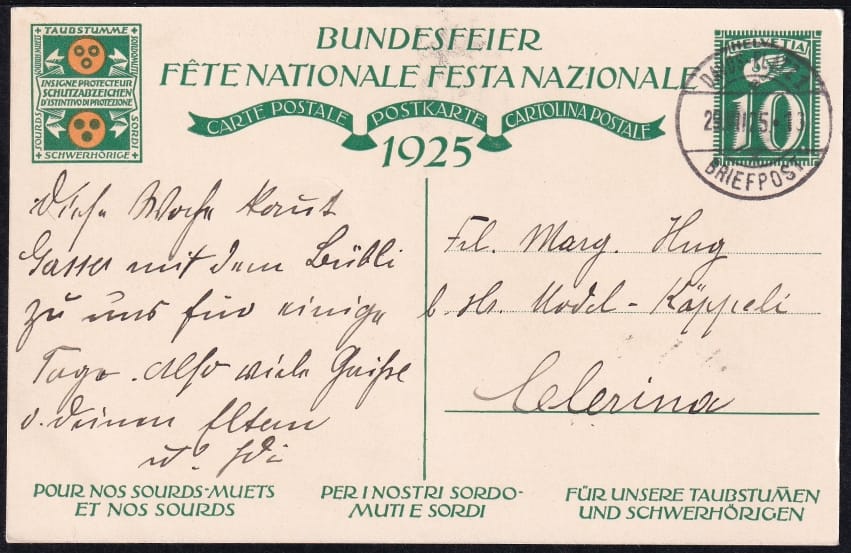 TAUBSTUMME
SOURDS-MUETS
SORDOMUTI
INSIGNE PROTECTEUR
SCHUTZABZEICHEN
D'ISTINTIVO DI PROTEZIONE
SOURDS
SORDI
SCHWERHÖRIGE
BUNDESFEIER
FÊTE NATIONALE FESTA NAZIONALE
CARTE POSTALE POSTKARTE CARTOLINA POSTALE
1925
HELVETIA
10
BRIEFPOST
Diese Woche kommt
Gasser mit dem Bübli
zu uns für einige
Tage. Also viele Grüsse
v. deinen Eltern
Frl. Marg. Hug
b. Hr. Model-Käppeli
Celerina
POUR NOS SOURDS-MUETS
ET NOS SOURDS
PER I NOSTRI SORDO-
MUTI E SORDI
FÜR UNSERE TAUBSTUM̄EN
UND SCHWERHÖRIGEN